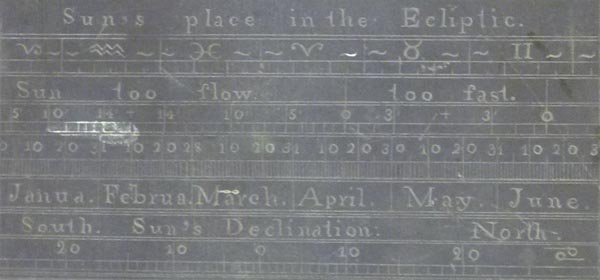 Sun's place in the Ecliptic.
♑ ~ ~ ♒ ~ ~ ♓ ~ ~ ♈ ~ ~ ♉ ~ ~ ♊ ~ ~
Sun too ſlow. too faſt.
5 10 14 + 14 10 5 0 3 + 3 0
0 10 20 31 10 20 28 10 20 31 10 20 30 10 20 31 10 20 3
Janua. Februa. March. April. May. June.
South. Sun's Declination: North.
20 10 0 10 20